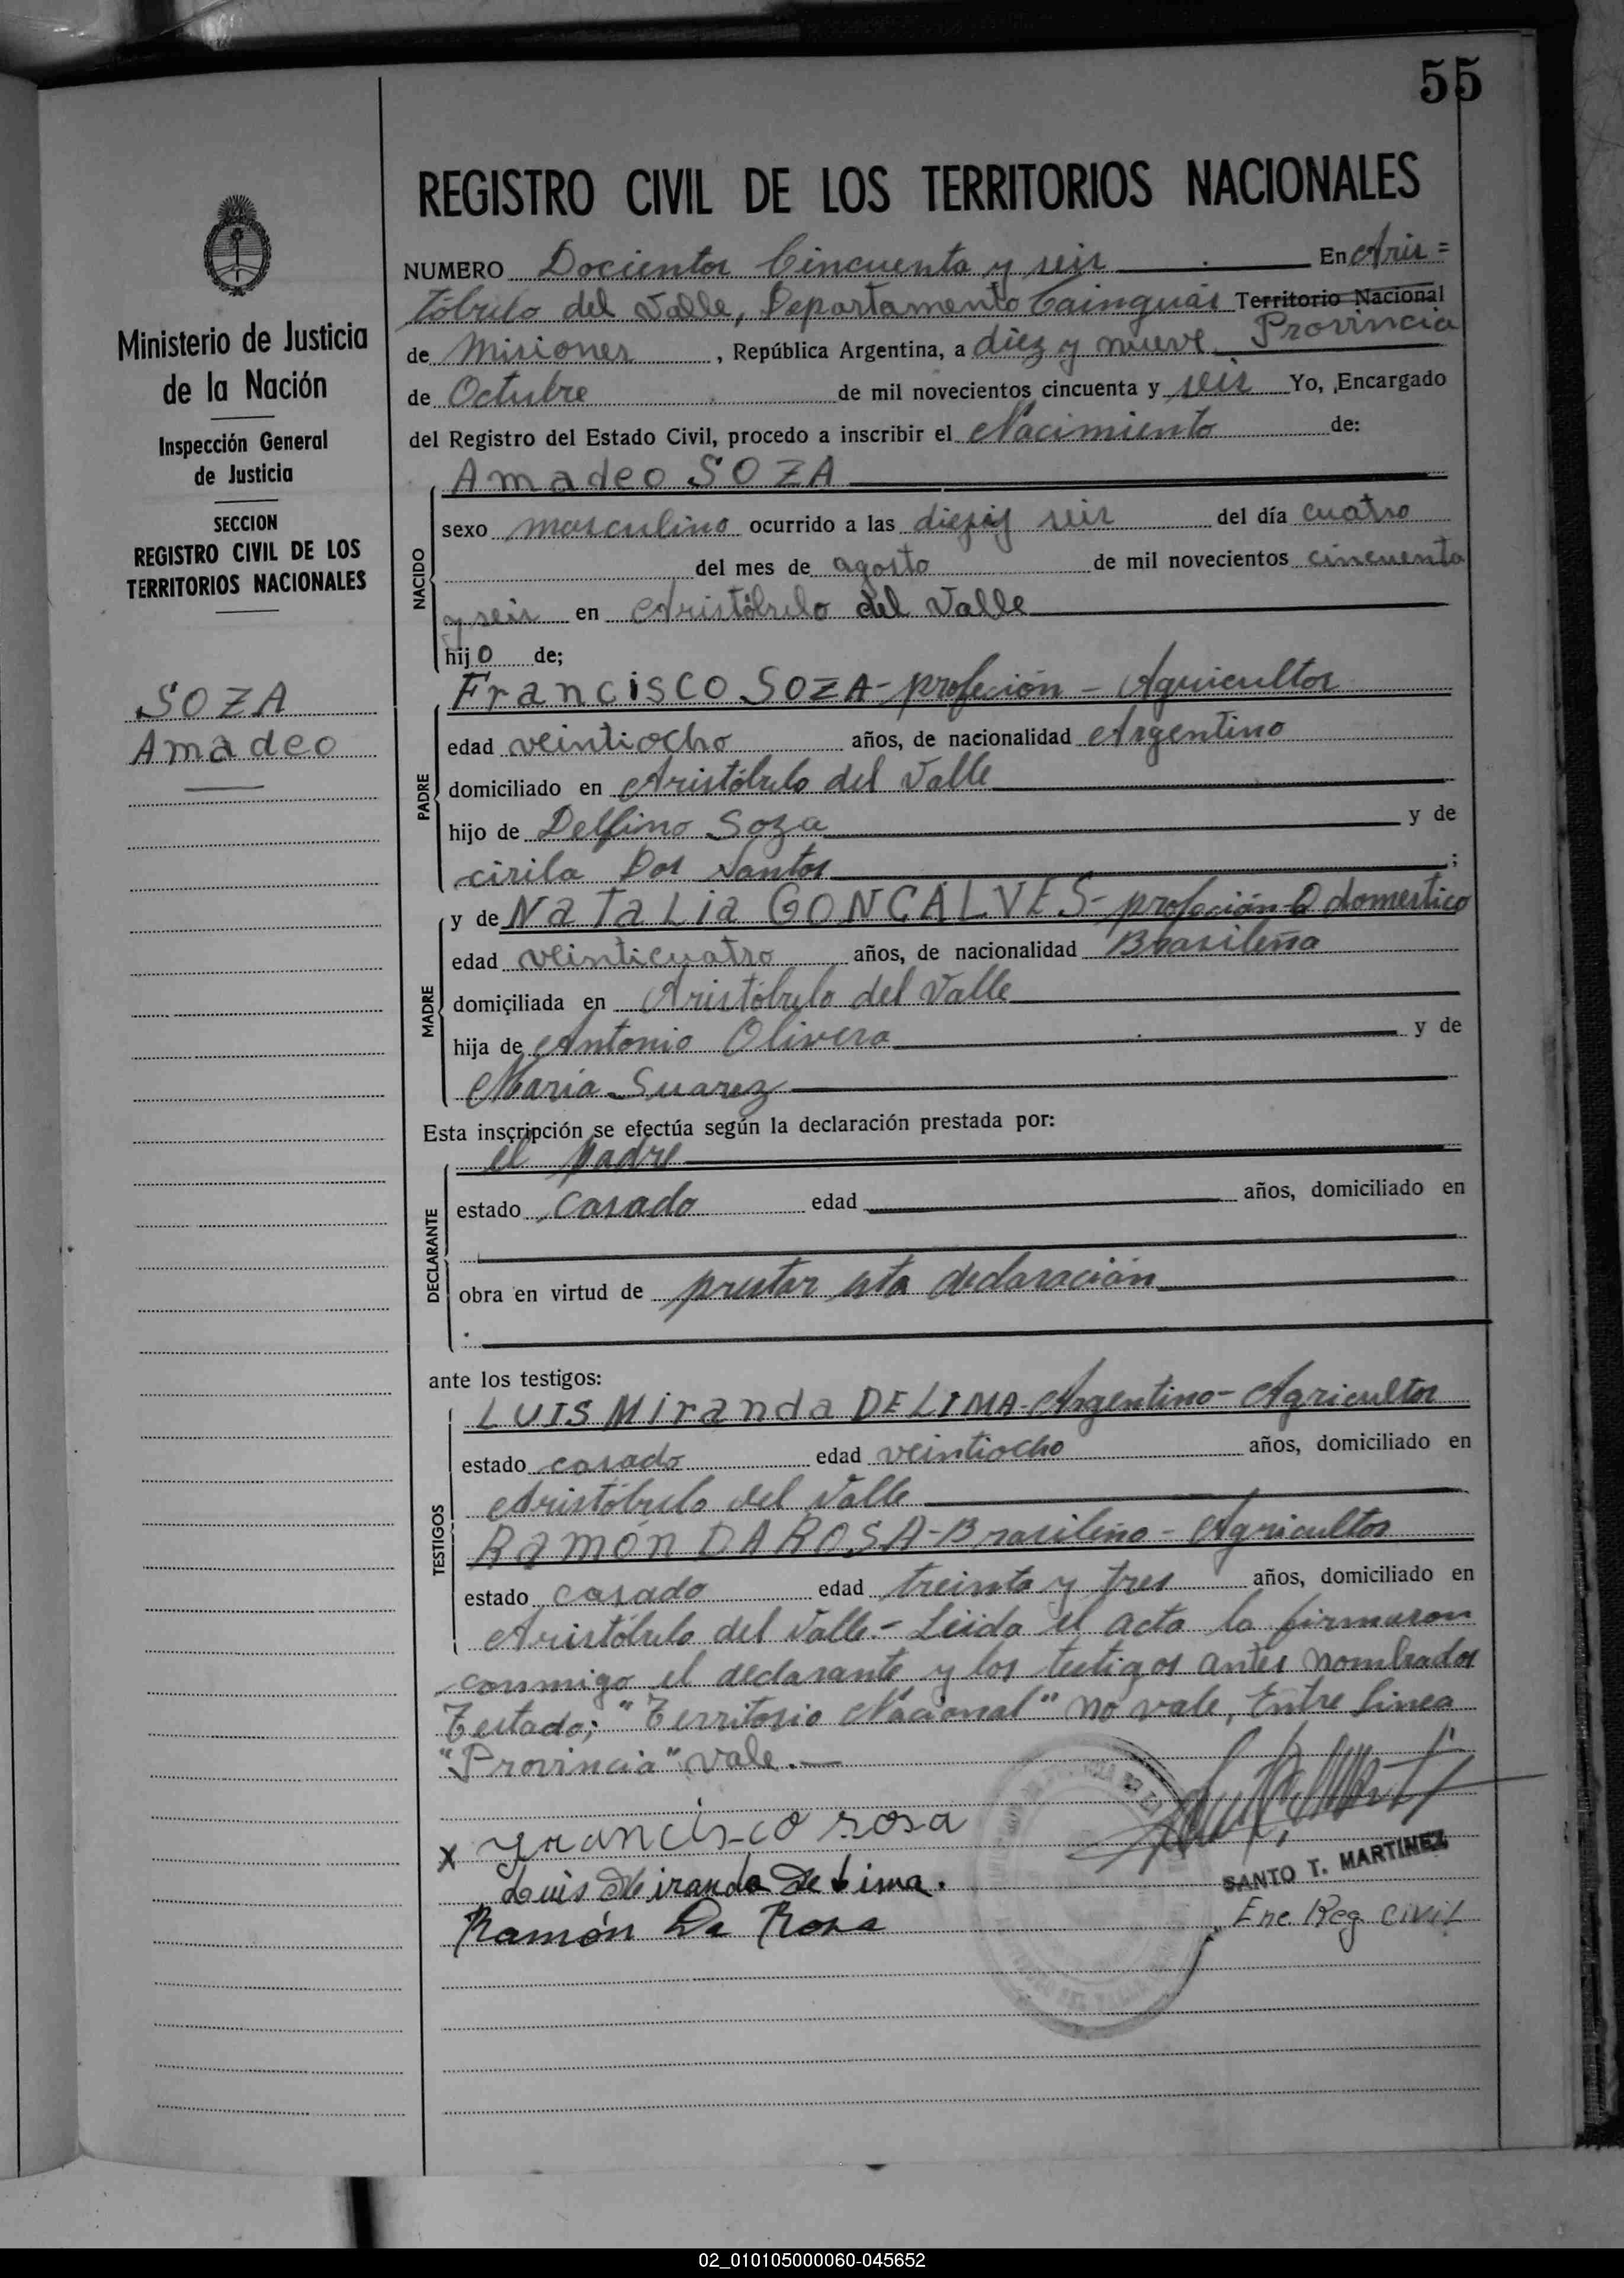 55
REGISTRO CIVIL DE LOS TERRITORIOS NACIONALES
Ministerio de Justicia
de la Nación
Inspección General
de Justicia
SECCION
REGISTRO CIVIL DE LOS
TERRITORIOS NACIONALES
SOZA
Amadeo
NUMERO Docientos Cincuenta y seis En Aris=
tóbulo del Valle, Departamento Cainguás Territorio Nacional
Provincia
de Misiones, República Argentina, a diez y nueve
de Octubre de mil novecientos cincuenta y seis Yo, Encargado
del Registro del Estado Civil, procedo a inscribir el Nacimiento de:
NACIDO
Amadeo SOZA
sexo masculino ocurrido a las seis del día cuatro
del mes de agosto de mil novecientos cincuenta
y seis en Aristóbulo del Valle
hijo de;
PADRE
Francisco SOZA - profeción - Agricultor
edad veintiocho años, de nacionalidad Argentino
domiciliado en Aristóbulo del Valle
hijo de Delfino Soza y de
cirila Dos Santos;
MADRE
y de NaTaLia GONCALVES - profeción Q domestico
edad veinticuatro años, de nacionalidad Brasileña
domiciliada en Aristóbulo del Valle
hija de Antonio Olivera y de
María Suarez
Esta inscripción se efectúa según la declaración prestada por:
DECLARANTE
el padre
estado casado edad años, domiciliado en
obra en virtud de prestar esta declaración
ante los testigos:
TESTIGOS
LUIS Miranda DE LIMA - Argentino - Agricultor
estado casado edad veintiocho años, domiciliado en
Aristóbulo del Valle
Ramón DA ROSA - Brasileño - Agricultor
estado casado edad treinta y tres años, domiciliado en
Aristóbulo del Valle.- Leida el acta la firmaron
conmigo el declarante y los testigos antes nombrados
Testado; "Territorio Nacional" no vale, Entre linea
"Provincia" vale.-
x Francisco sosa
Luis Miranda De Lima.
Ramón Da Rosa
SANTO T. MARTINEZ
Enc. Reg civil
02_010105000060-045652